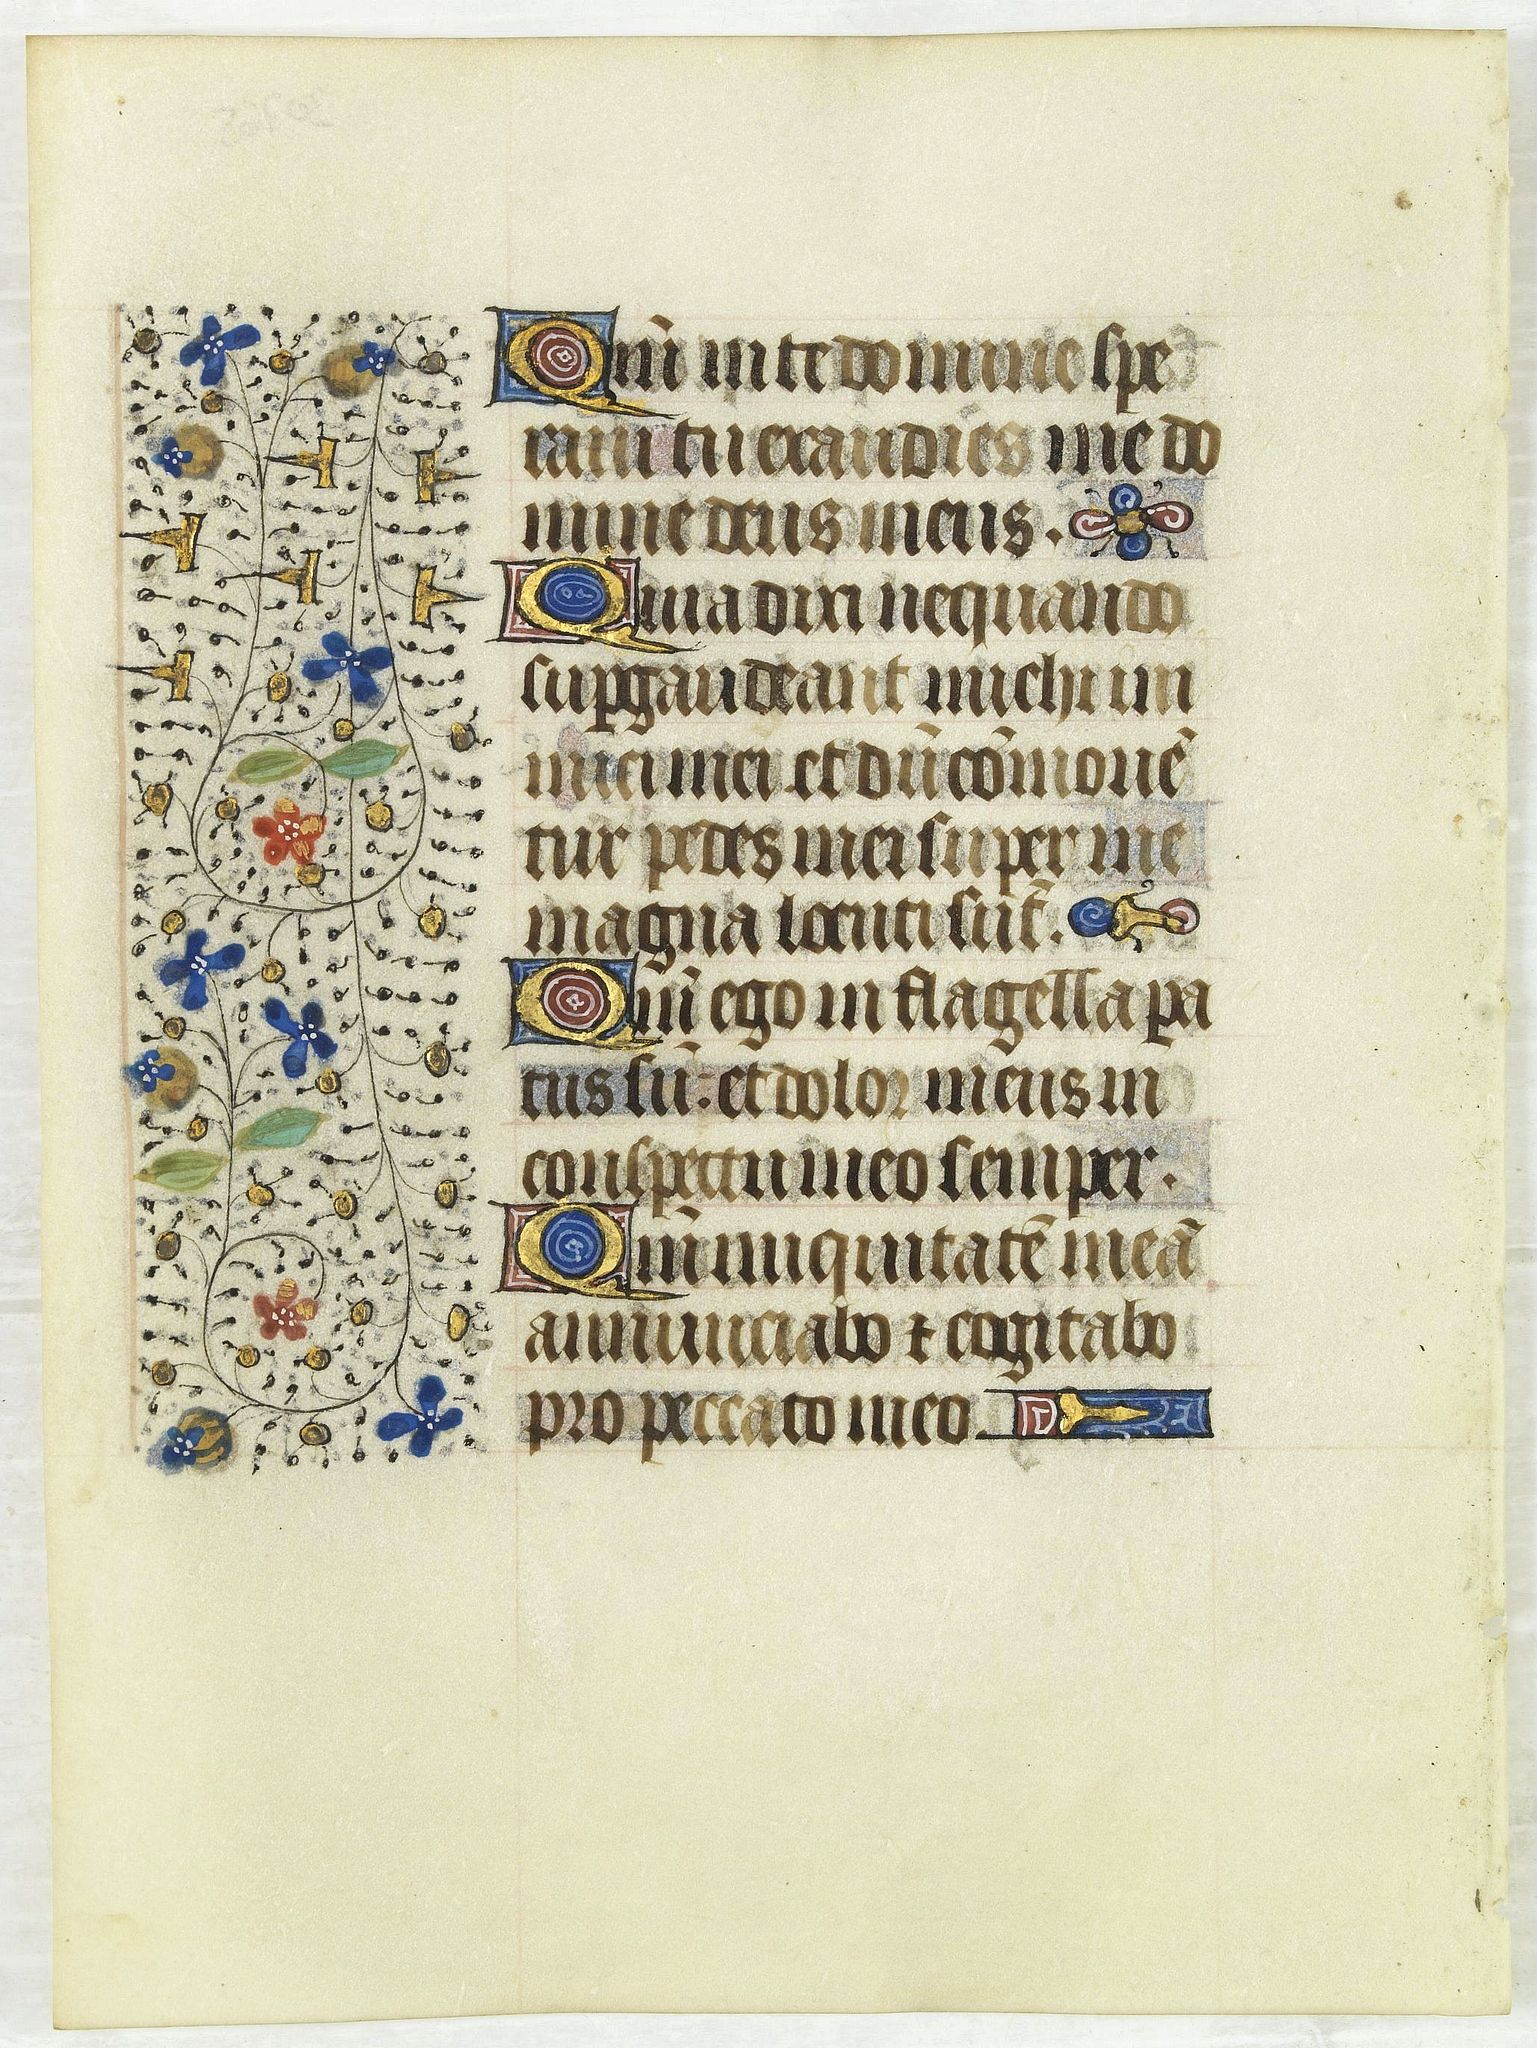 Qm̄ in te domine spe
raui tu exaudies me do
mine deus meus.
Quia dixi nequando
supgaudeant michi in
imici mei et dū cōmouē
tur pedes mei super me
magna locuti sūt.
Qm̄ ego in flagella pa
tus sū: et dolor meus in
conspectu meo semper.
Qm̄ iniquitatē meā
annunciabo ⁊ cogitabo
pro peccato meo.